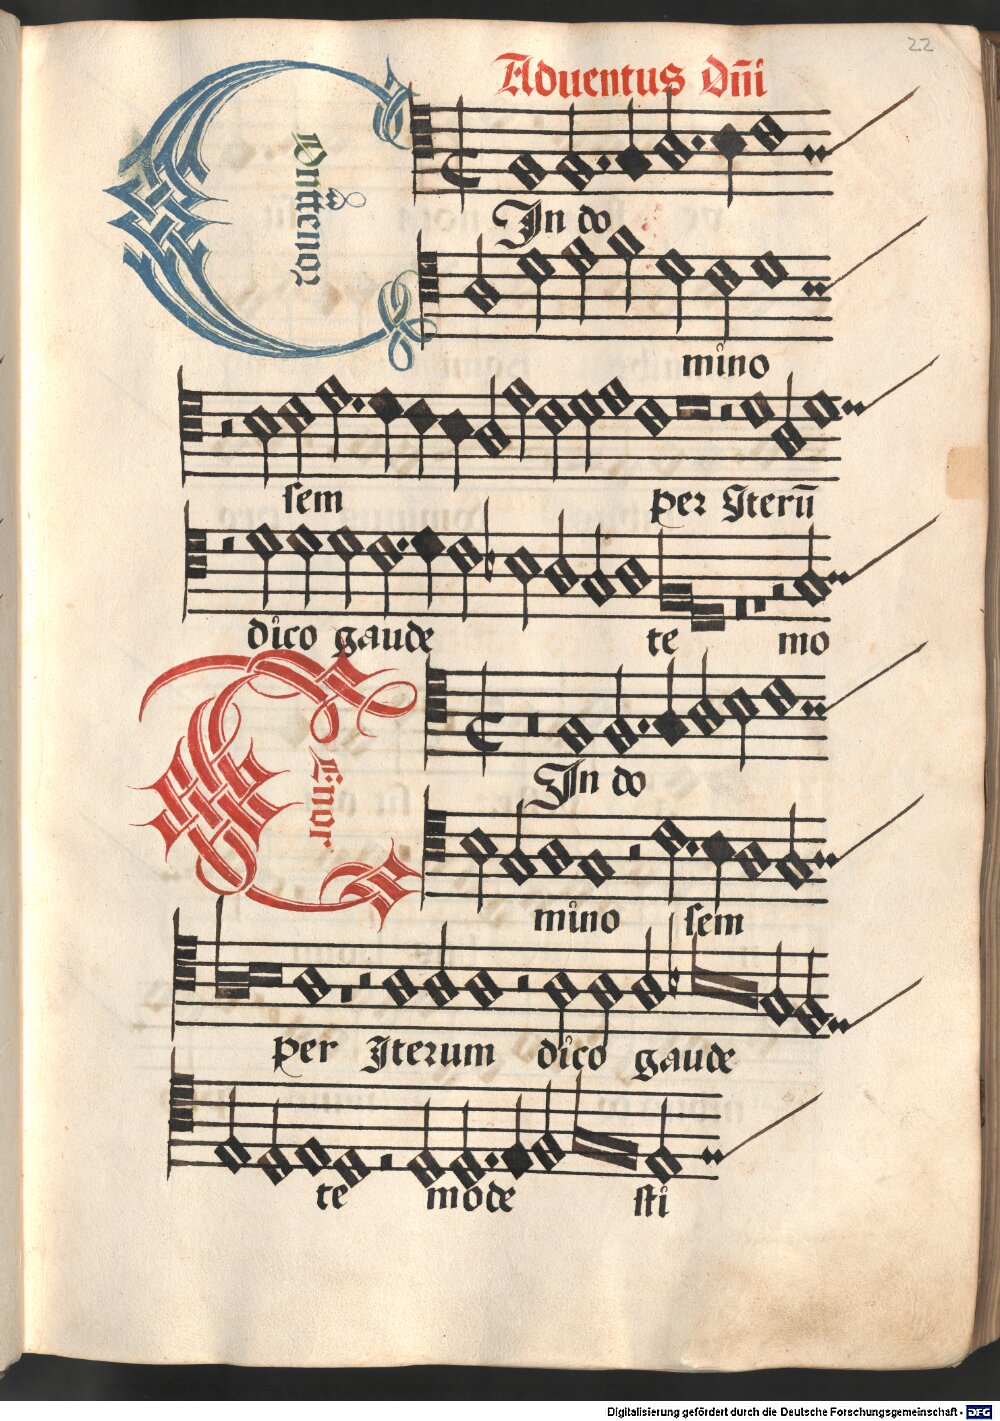 22
Aduentus Dn̄i
In do
mino
sem
per Iterū
dico gaude
te mo
Tenor
In do
mino sem
per Iterum dico gaude
te mode sti
Digitalisierung gefördert durch die Deutsche Forschungsgemeinschaft - DFG